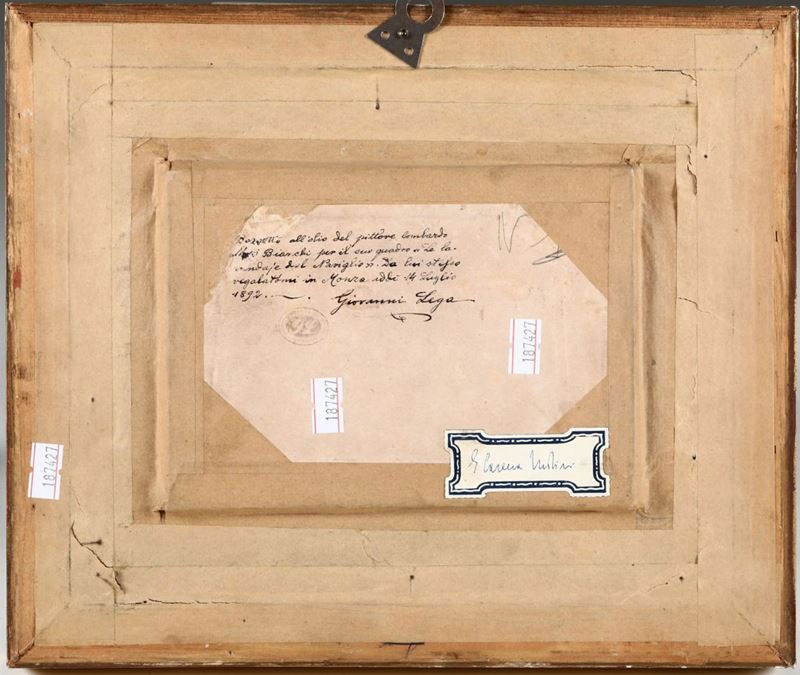 Bozzetto all'olio del pittore lombardo
Mosè Bianchi per il suo quadro "Le la-
vandaje del Naviglio". Da lui stesso
regalatomi in Monza addì 14 Luglio
1892.
Giovanni Lega
187427
187427
187427